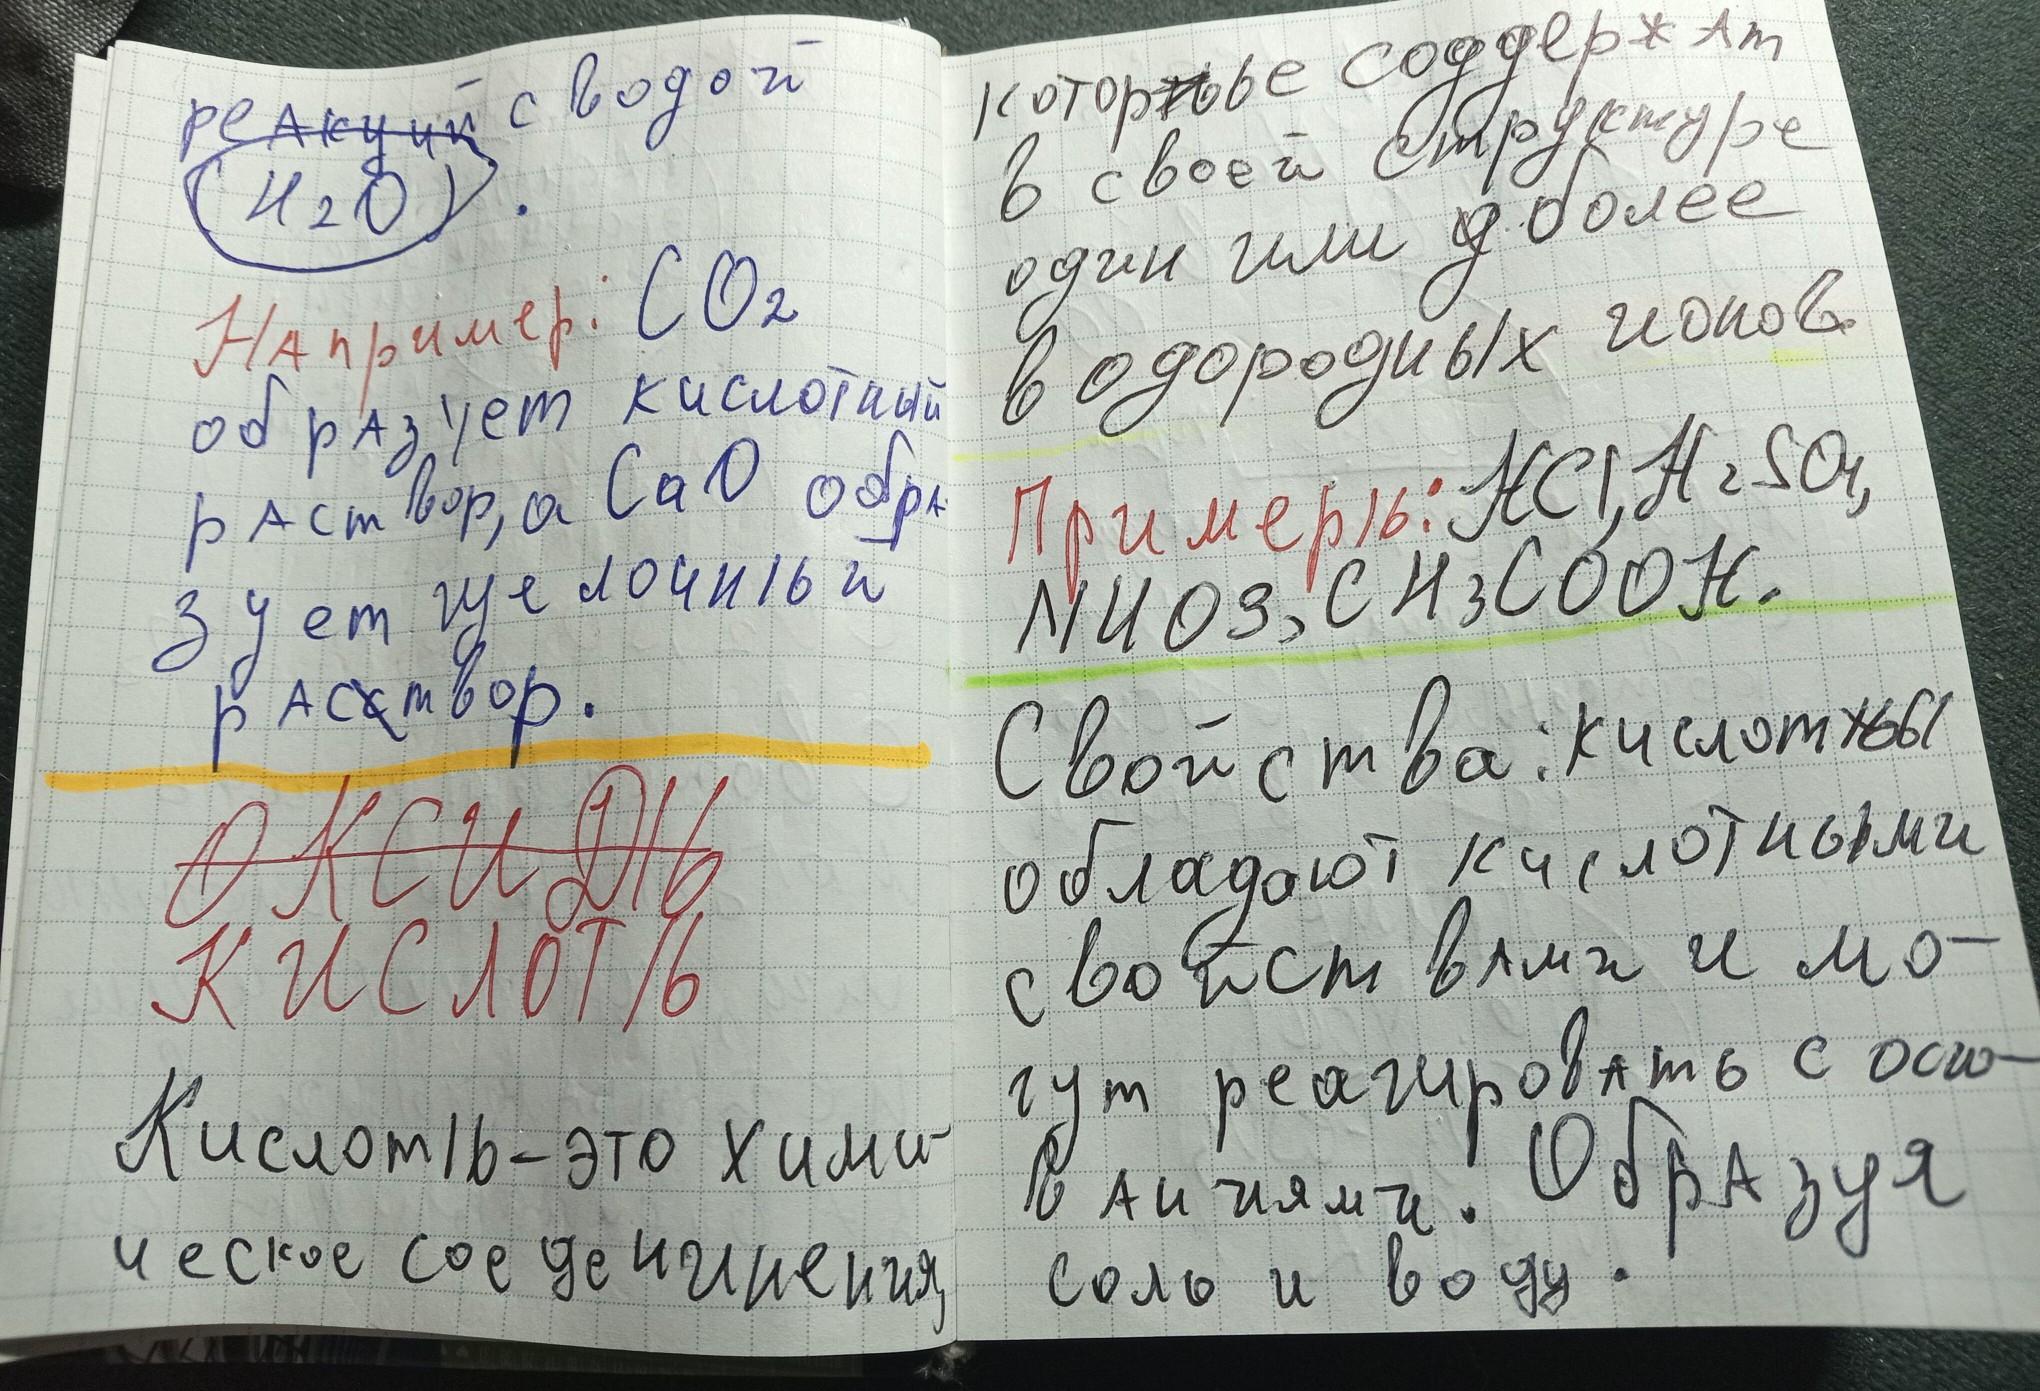 реакций с водой
(H2O).
Например: CO2
образует кислотный
раствор, а CaO обра
зует щелочный
расствор.
ОКСИДЫ
КИСЛОТЫ
Кислоты - это хими
ческое соеденинения,
которые соддержат
в своей структуре
один или более
водородных ионов.
Примеры: HCl, H2SO4,
NHO3, CH3COOH.
Свойства: кислоты
обладают кислотными
свойствами и мо-
гут реагировать с осно-
ваниями. Образуя
соль и воду.